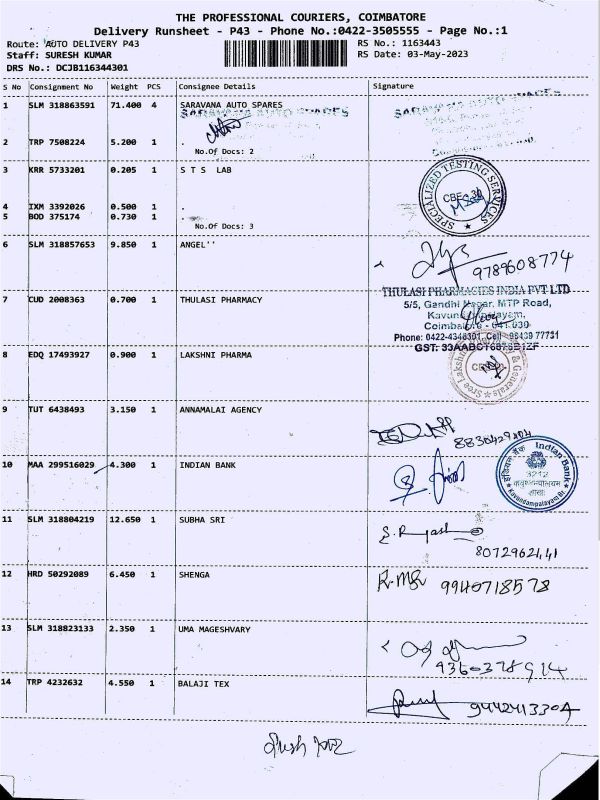 THE PROFESSIONAL COURIERS, COIMBATORE
Delivery Runsheet - P43 - Phone No.:0422-3505555 - Page No.:1
Route: AUTO DELIVERY P43
RS No.: 1163443
Staff: SURESH KUMAR
RS Date: 03-May-2023
DRS No.: DCJB116344301
S No Consignment No Weight PCS Consignee Details Signature
1 SLM 318863591 71.400 4 SARAVANA AUTO SPARES
2 TRP 7508224 5.200 1 .
No.Of Docs: 2
3 KRR 5733201 0.205 1 S T S LAB
SPECIALIZED TESTING SERVICES
4 IXM 3392026 0.500 1 .
5 BOD 375174 0.730 1 .
No.Of Docs: 3
6 SLM 318857653 9.850 1 ANGEL''
9789608774
7 CUD 2008363 0.700 1 THULASI PHARMACY
THULASI PHARMACIES INDIA PVT LTD
5/5, Gandhi Nagar, MTP Road,
Coimbatore - 641 030
Phone: 0422-4348301, Cell - 98439 77731
8 EDQ 17493927 0.900 1 LAKSHNI PHARMA
9 TUT 6438493 3.150 1 ANNAMALAI AGENCY
8830429404
10 MAA 299516029 4.300 1 INDIAN BANK
इंडियन बैंक Indian Bank
3212
Kavundampalayam Br.
11 SLM 318804219 12.650 1 SUBHA SRI
8072962441
12 HRD 50292089 6.450 1 SHENGA
9940718578
13 SLM 318823133 2.350 1 UMA MAGESHVARY
9360378914
14 TRP 4232632 4.550 1 BALAJI TEX
9442413304